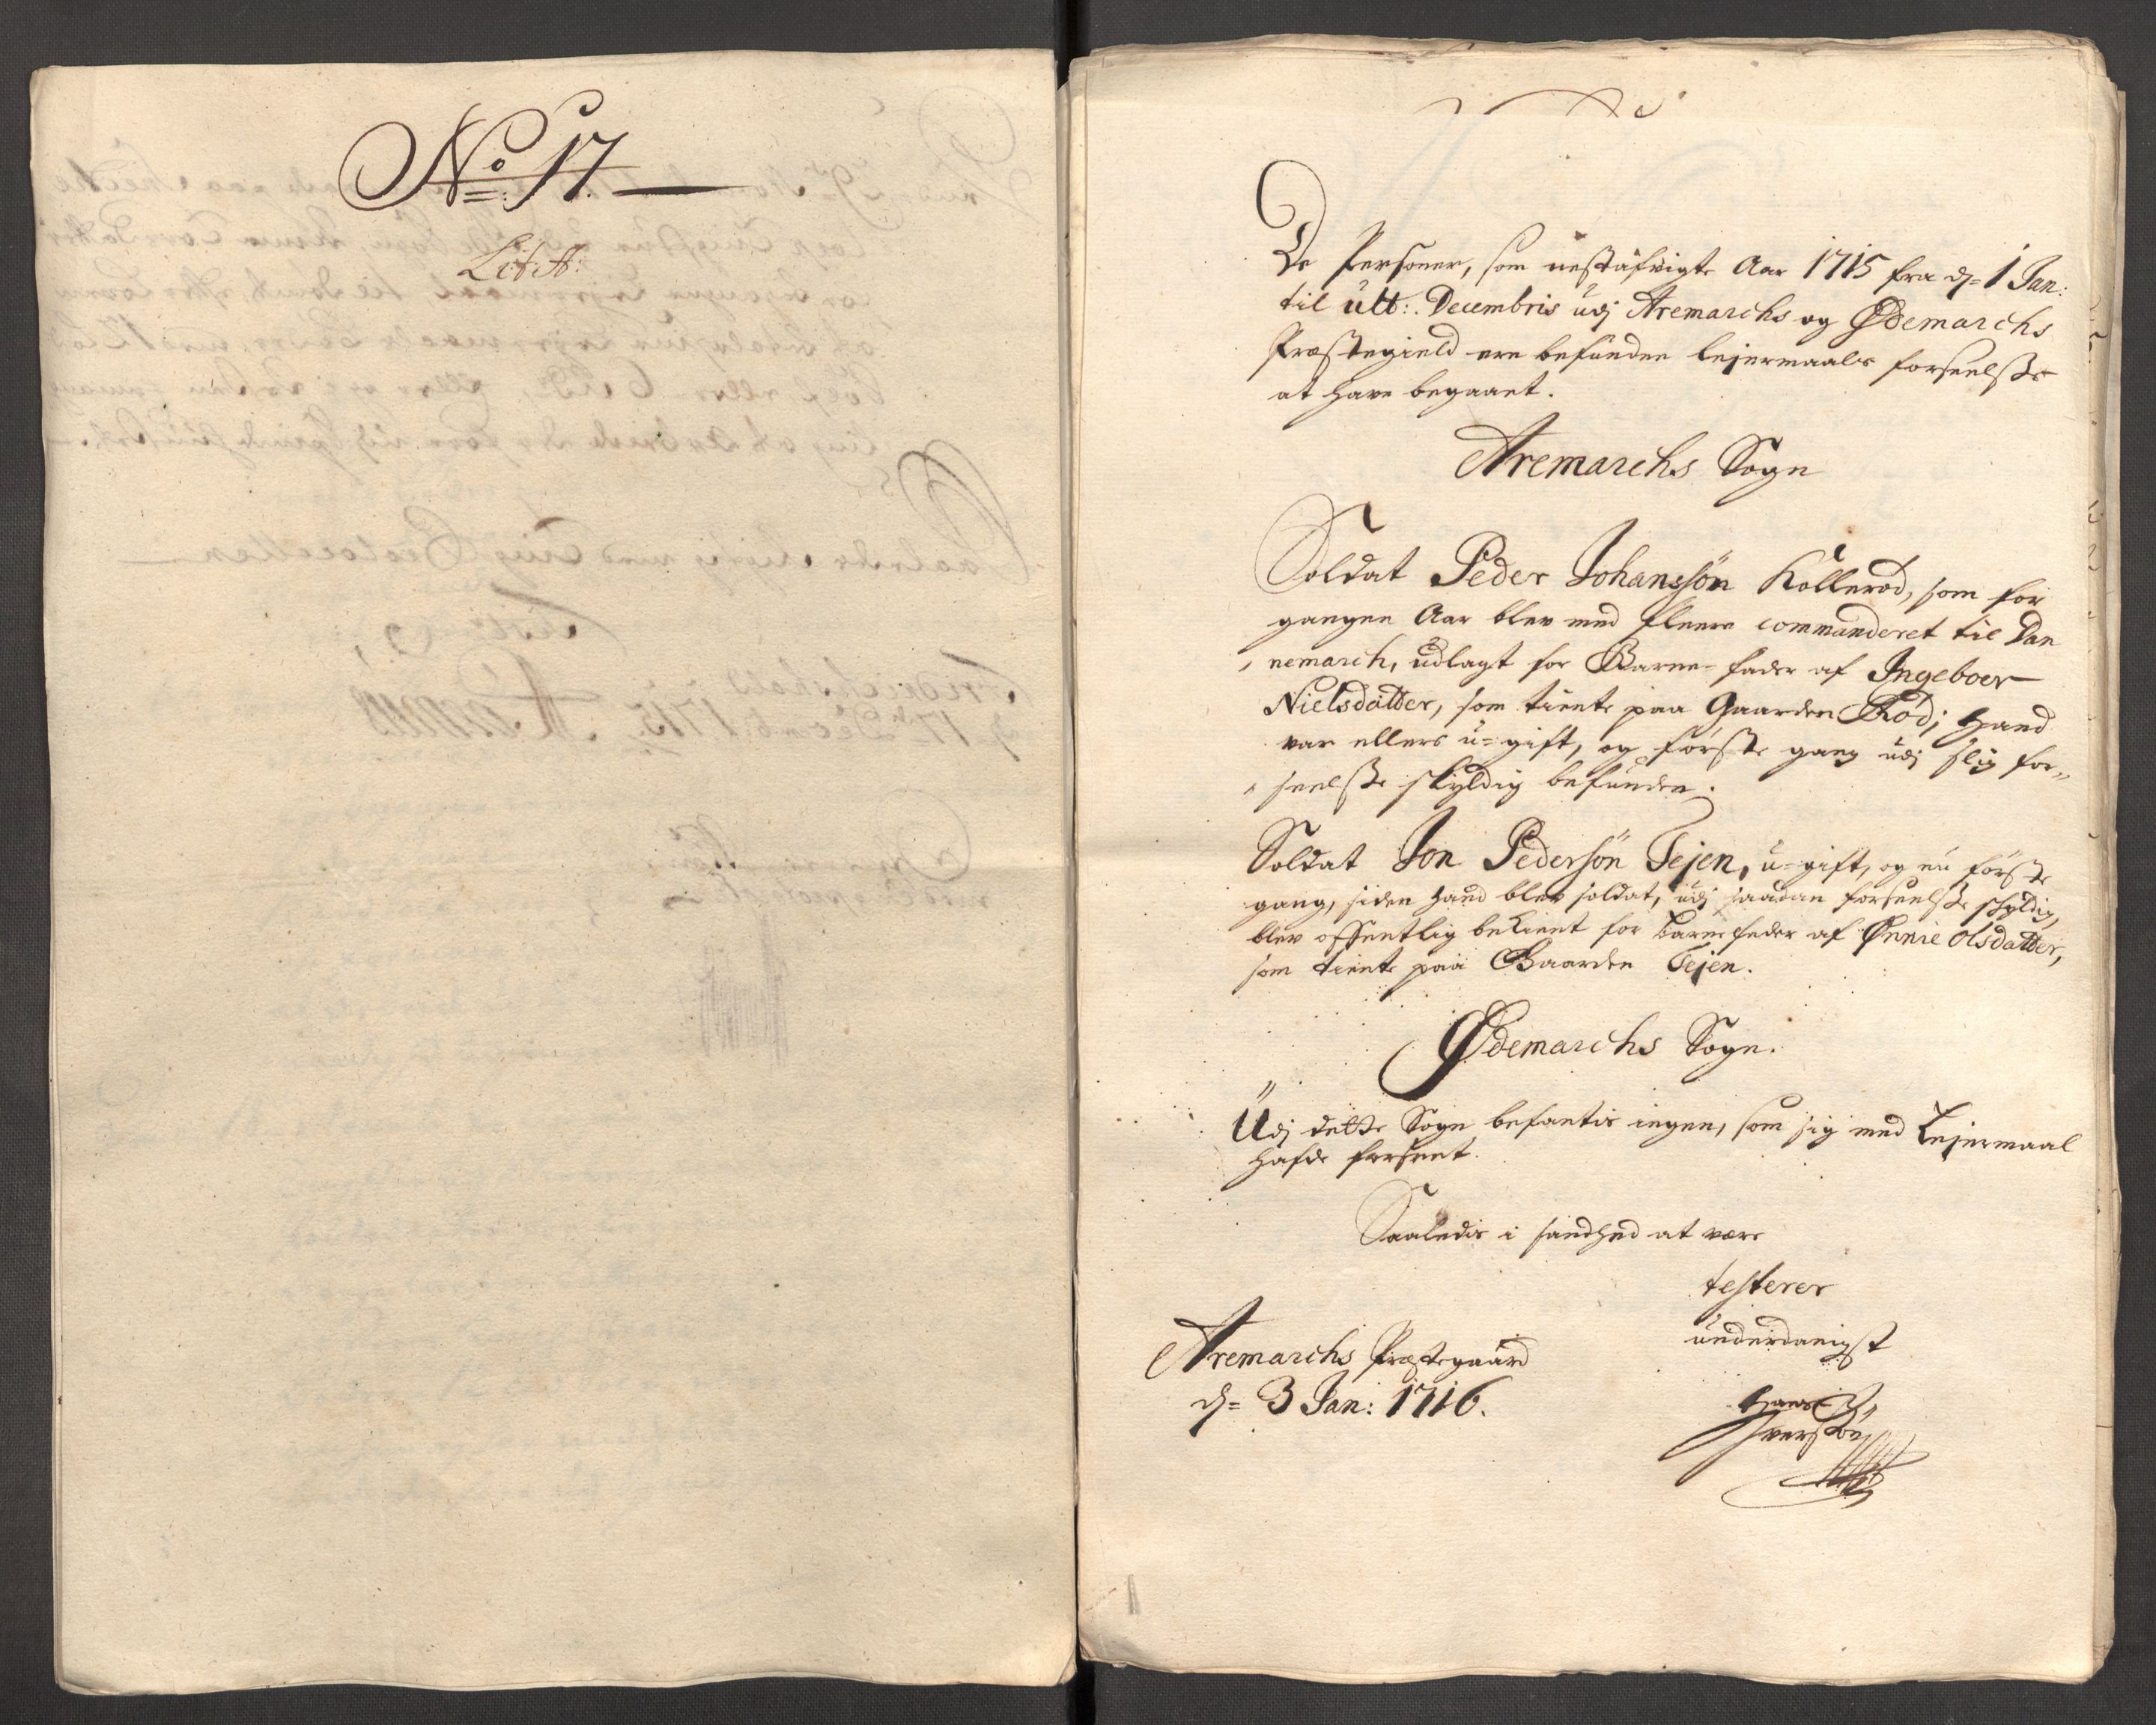 No 17.
Lit: A:
De Personer, som nestafvigte Aar 1715 fra d= 1 Jan:
til ult: Decembris udj Aremarchs og Ødemarchs
Præstegield ere befunden lejermaals forseelsse
at have begaaet.
Aremarchs Sogn
Soldat Peder Johanssön Kollerød, som for
gangen Aar blev med fleere commanderet til Dan
nemarch, udlagt for Barne-fader af Ingeboer
Nielsdatter, som tiente paa Gaarden Rød; Hand
var ellers u=gift, og første gang udj slig for„
seelsse skyldig befunden.
Soldat Jon Pedersön Tejen, u=gift, og nu første
gang, siden hand blev soldat, udj saadan forseelsse skyldig,
blev offentlig bekient for barnefader af Ønnie Olsdatter,
som tiente paa Gaarden Tejen.
Ødemarchs Sogn.
Udj dette Sogn befantis ingen, som sig med Lejermaal
hafde forseet.
Saaledis i sandhed at være
testerer
underdanigst
Aremarchs Præstegaard
d= 3 Jan: 1716.
Hans
Iverssön